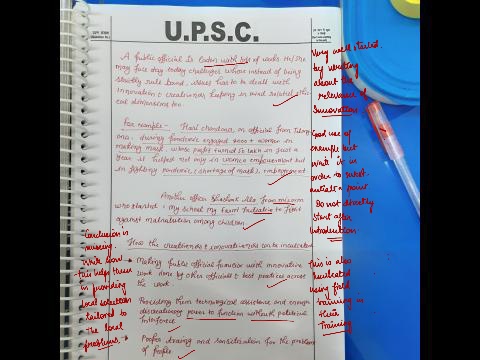 U.P.S.C.
A public official is laden with lots of works. He/She
may face day today challenges whose instead of being
strictly rule bound, issues has to dealt with
innovation & creativeness keeping in mind related ethical
dimensions too.
For example - Hari chandana, an official from
during pandemic engaged 200+ women in
making mask, whose profit turned 5 lakh in just a
year. It helped not only in women empowerment but
in fighting pandemic (shortage of mask), embezzlement
Another officer from mizoram
who started: My school My farm Initiative to Fight
against malnutrition among children
How the creativeness & innovativeness can be inculcated
Making public official function with innovative
work done by other officials & best practices across
the work.
Providing them technological assistance and enough
discretionary power to function without political
Interference
Proper training and sensitisation for the problems
of people.
Very well started
by writing
about the
relevance of
Innovation.
Good use of
example but
write it in
order to
a point
Do not directly
start after
introduction.
This is also
inculcated
using field
training in
their
Training
Conclusion is
missing.
Write how
this helps them
in providing
local solution
tailored to
the local
problems.